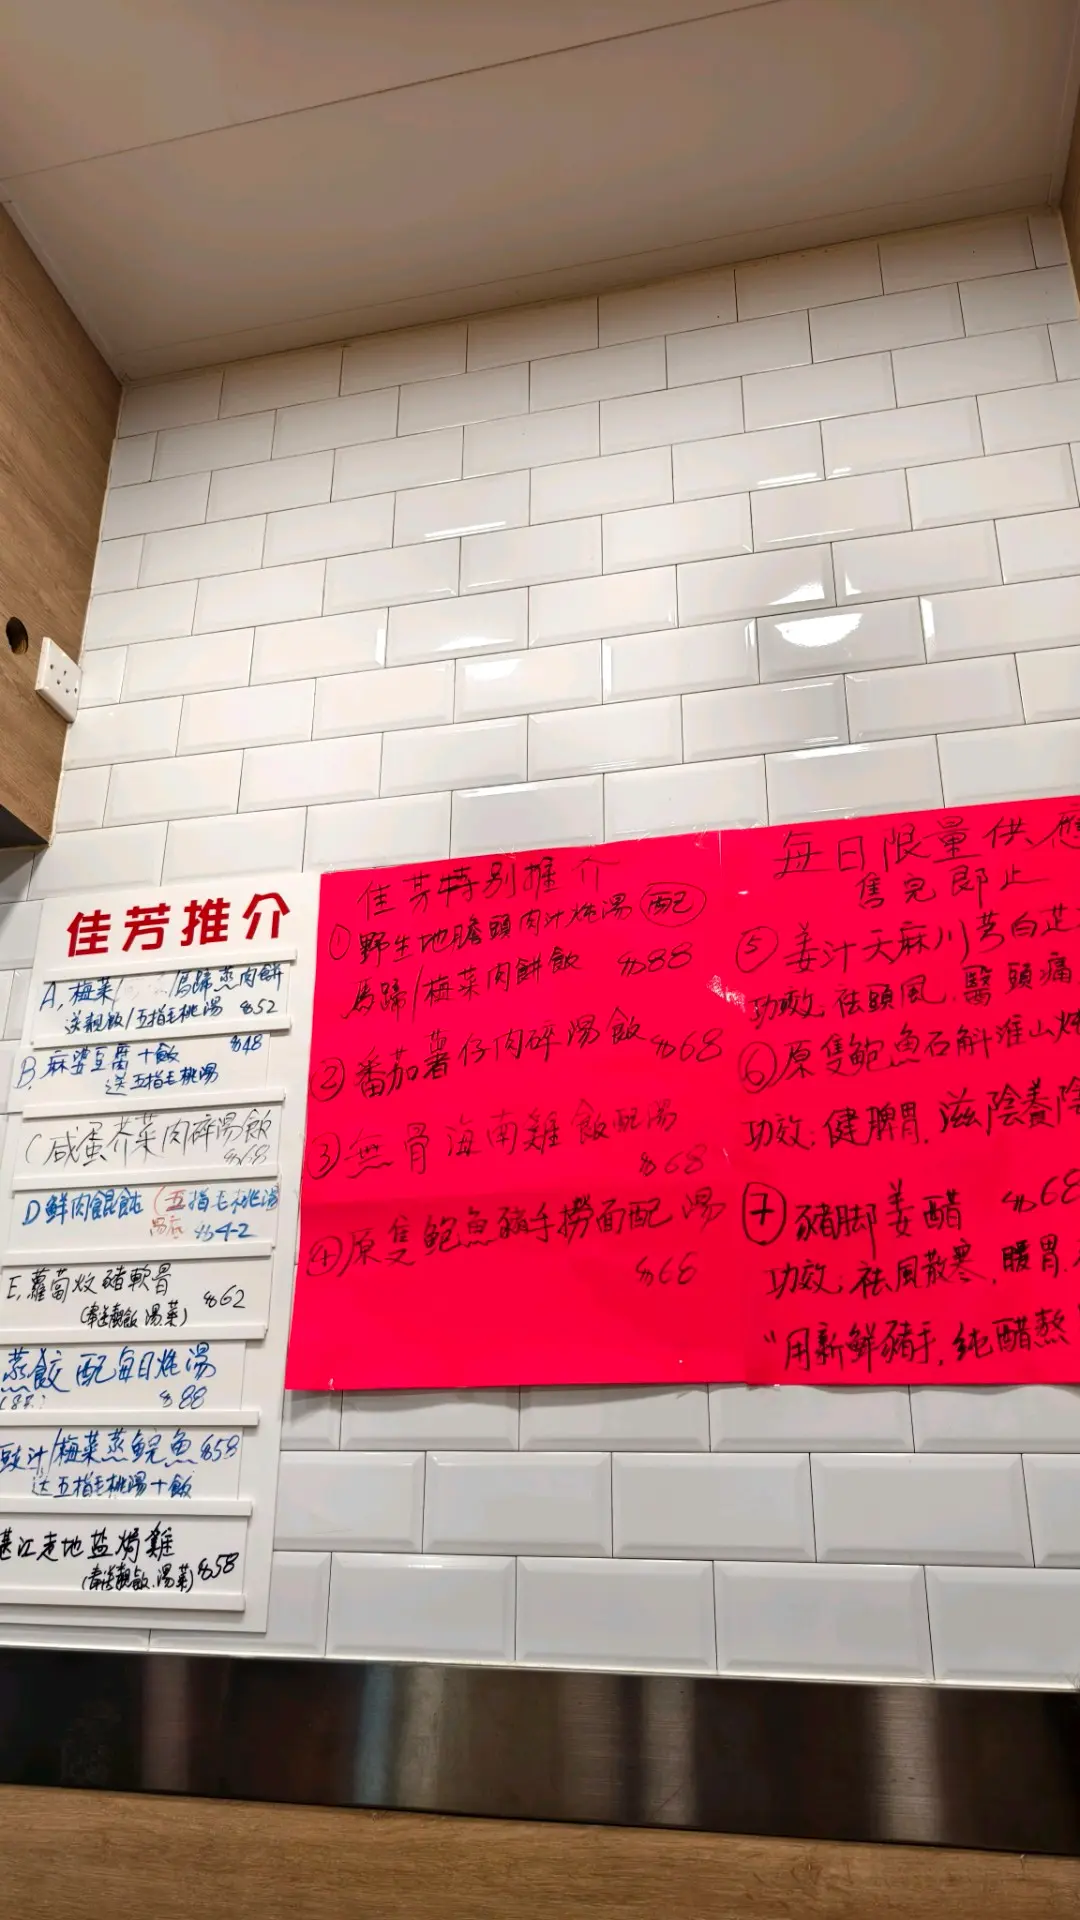 佳芳推介
A. 梅菜/ /馬蹄蒸肉餅
送靚飯/五指毛桃湯 $52
B. 麻婆豆腐+飯 $48
送五指毛桃湯
C 咸蛋芥菜肉碎湯飯
$68
D 鮮肉餛飩(五指毛桃湯
湯底 $42
E. 蘿蔔炆豬軟骨
(奉送靚飯.湯.菜) $62
蒸餃配每日炖湯
$88
豉汁/梅菜蒸鯇魚 $58
送五指毛桃湯+飯
湛江走地盐焗雞
(奉送靚飯.湯.菜) $58
佳芳特別推介
① 野生地膽頭肉汁炖湯 配
馬蹄/梅菜肉餅飯 $88
② 番茄薯仔肉碎湯飯 $68
③ 無骨海南雞飯配湯
$68
④ 原隻鮑魚豬手撈面配湯
$68
每日限量供應
售完即止
⑤ 姜汁天麻川芎白芷
功效: 祛頭風, 醫頭痛
⑥ 原隻鮑魚石斛淮山炖
功效: 健脾胃, 滋陰養陰
⑦ 豬脚姜醋 $68
功效: 祛風散寒, 暖胃.
"用新鮮豬手, 純醋熬"